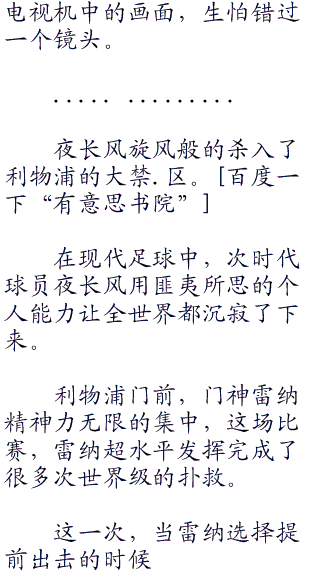 电视机中的画面，生怕错过
一个镜头。
..... .........
夜长风旋风般的杀入了
利物浦的大禁.区。[百度一
下“有意思书院”]
在现代足球中，次时代
球员夜长风用匪夷所思的个
人能力让全世界都沉寂了下
来。
利物浦门前，门神雷纳
精神力无限的集中，这场比
赛，雷纳超水平发挥完成了
很多次世界级的扑救。
这一次，当雷纳选择提
前出击的时候